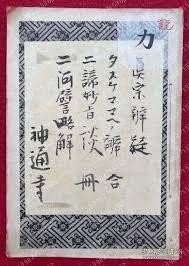 力
真宗辨疑
タスケタマヘ辨 合
二諦妙旨談 冊
二河譬略解
神通寺